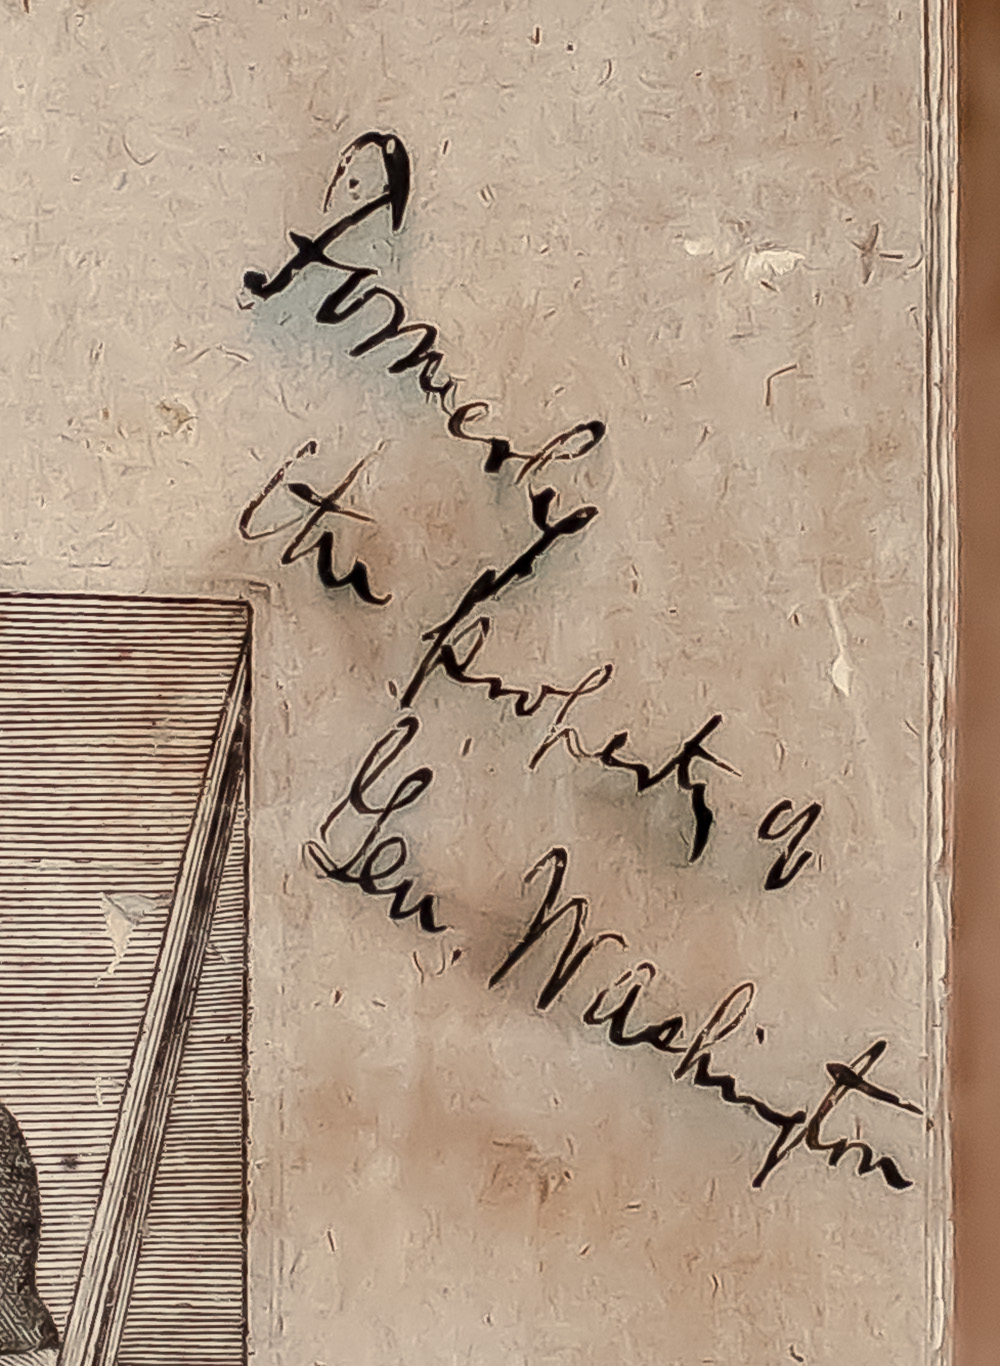 Formerly
the property of
Gen. Washington